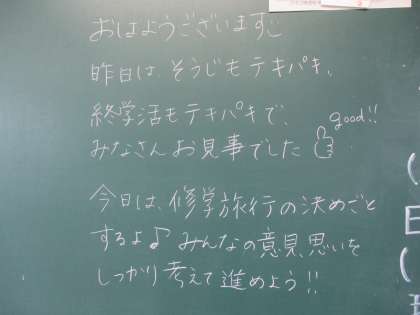 おはようございます。
昨日は、そうじもテキパキ、
終学活もテキパキで、
みなさんお見事でした good!!
今日は、修学旅行の決めごと
するよ♪ みんなの意見、思いを
しっかり考えて進めよう!!